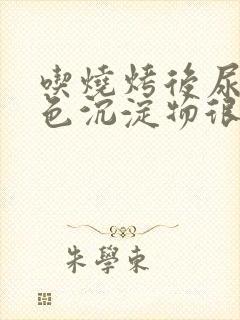 喫燒烤後尿
色沉淀物很
朱學東